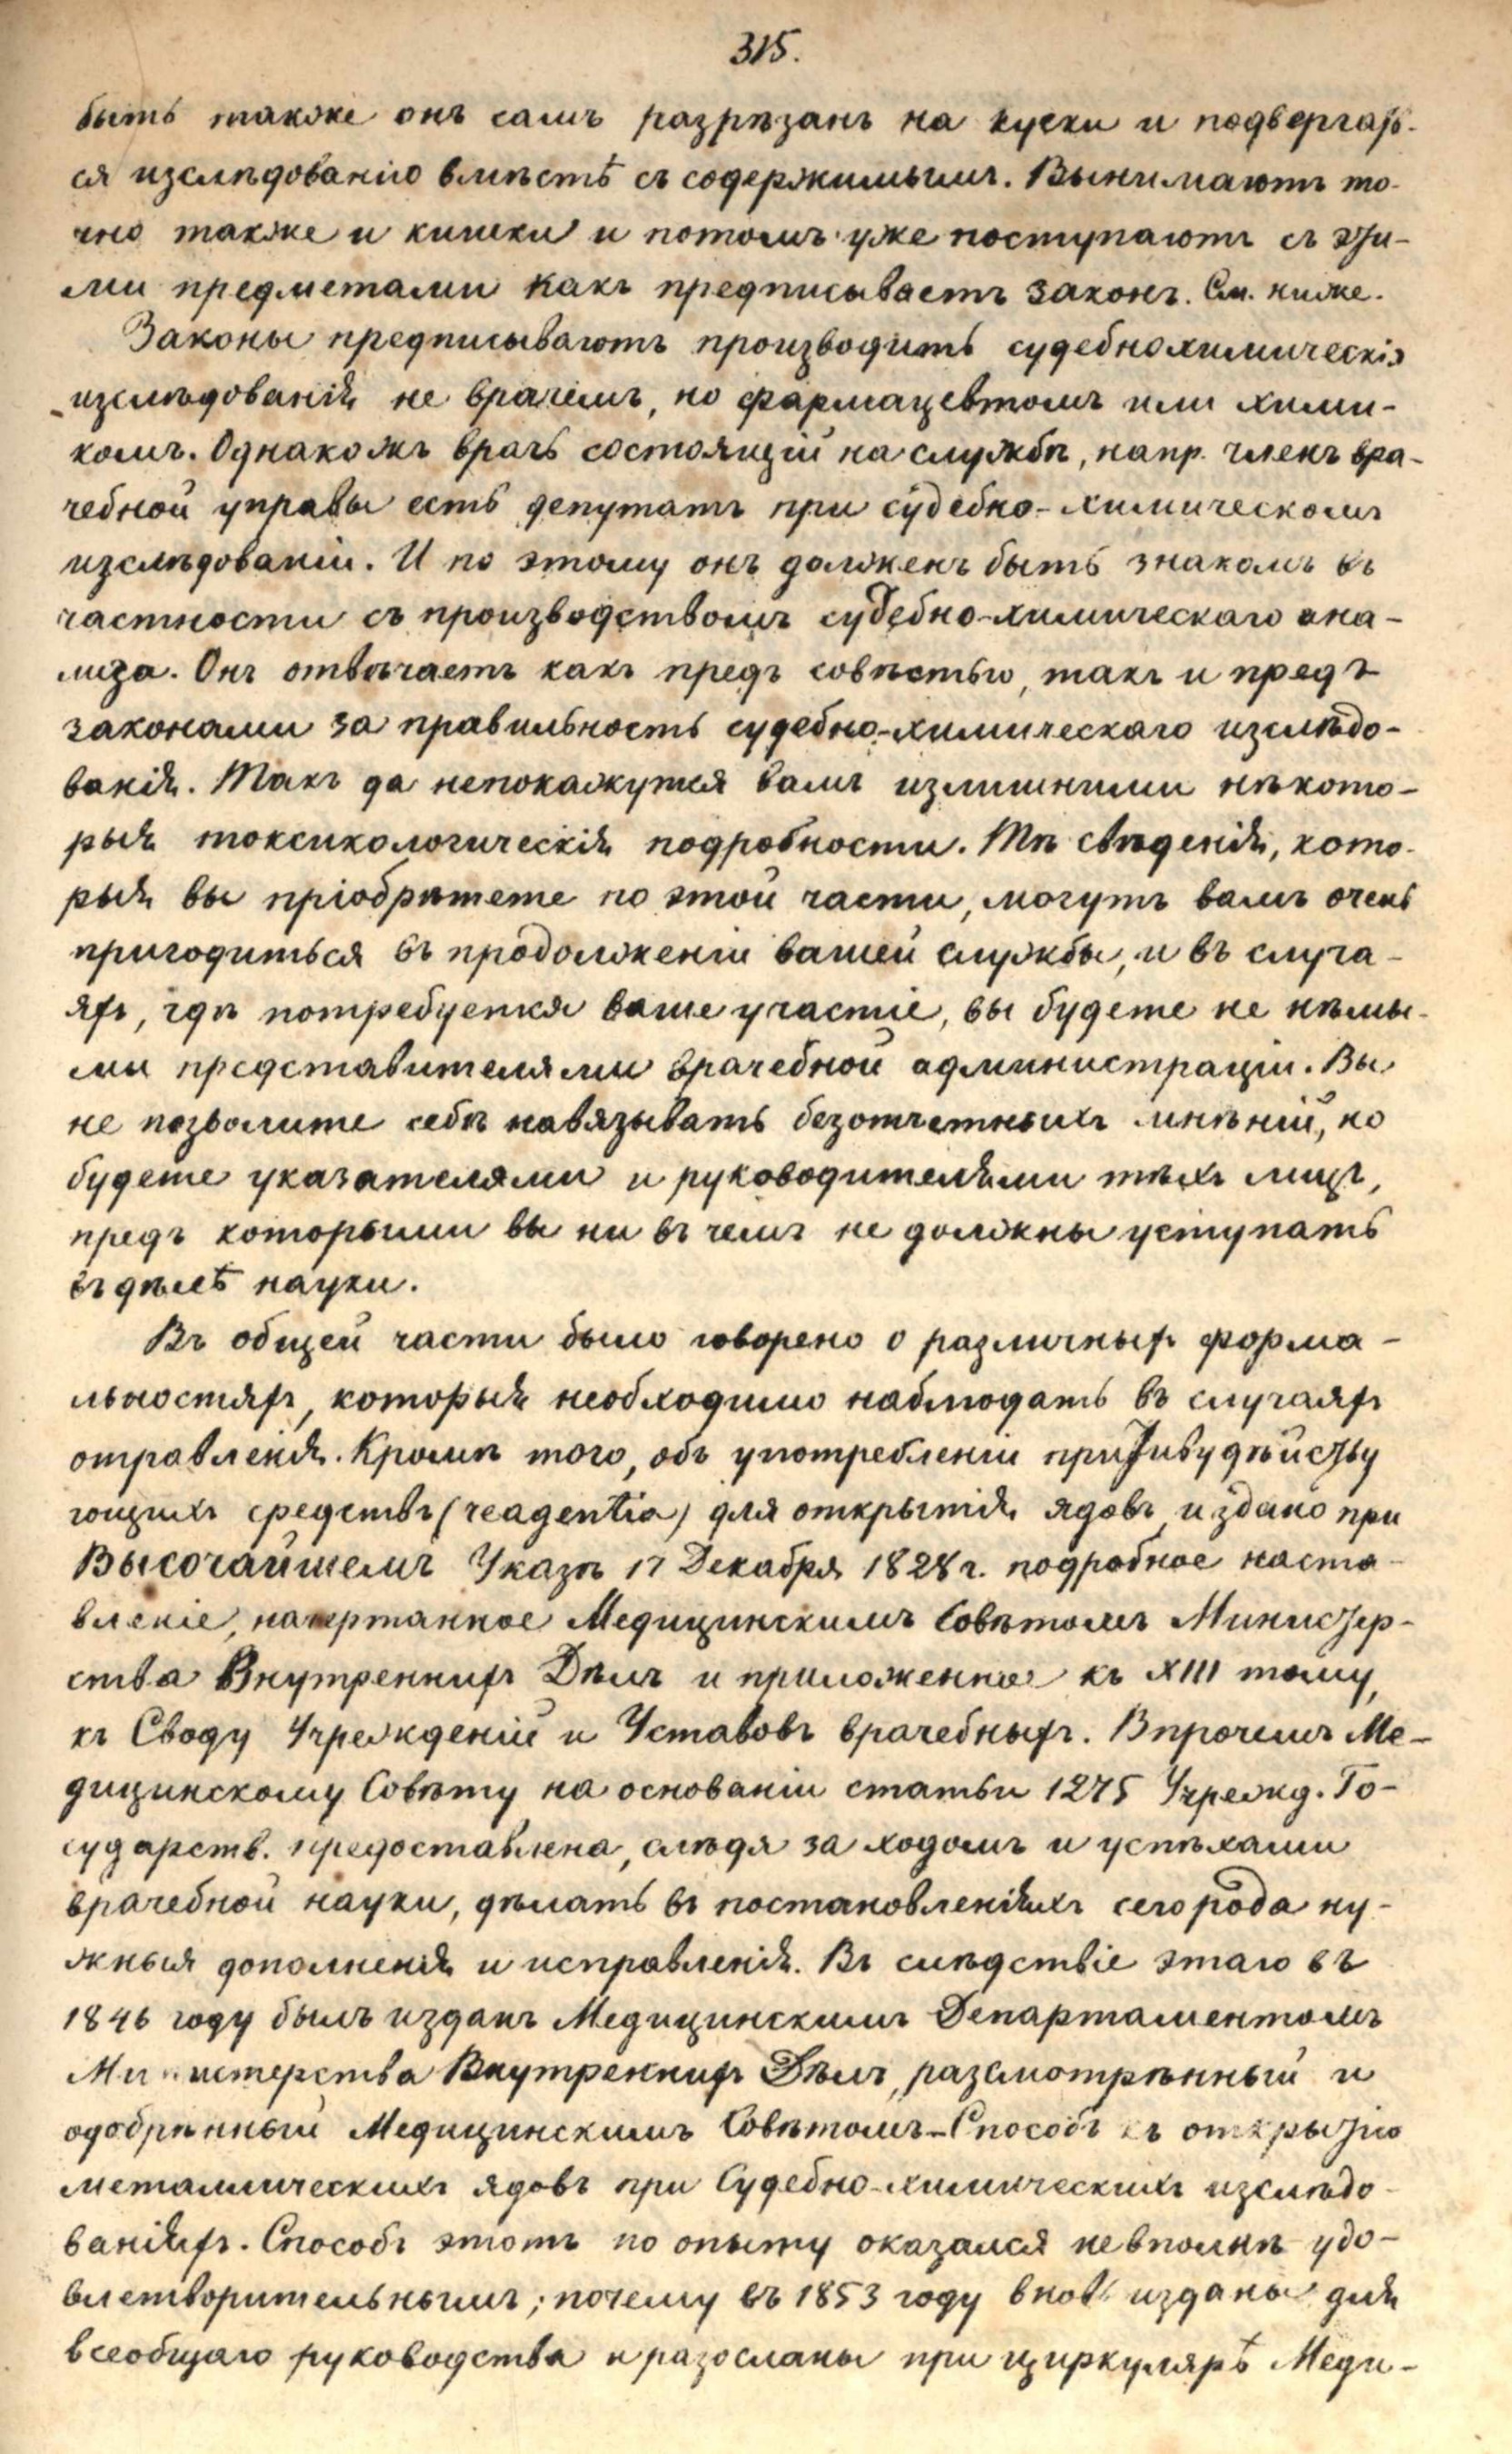 315.
быть также онъ самъ разрѣзанъ на куски и подвергать-
ся изслѣдованію вмѣстѣ съ содержимымъ. Вынимаютъ то-
чно также и кишки и потомъ уже поступаютъ съ эти-
ми предметами какъ предписываетъ законъ. См. ниже.
Законы предписываютъ производить судебнохимическія
изслѣдованія не врачемъ, но фармацевтомъ или хими-
комъ. Однакожъ врачъ состоящій на службѣ, напр. членъ вра-
чебной управы есть депутатъ при судебно-химическомъ
изслѣдованіи. И по этому онъ долженъ быть знакомъ въ
частности съ производствомъ судебно-химическаго ана-
лиза. Онъ отвѣчаетъ какъ предъ совѣстью, такъ и предъ
законами за правильность судебно-химическаго изслѣдо-
ванія. Такъ да непокажутся вамъ излишними нѣкото-
рыя токсикологическія подробности. Тѣ свѣденія, кото-
рыя вы пріобрѣтете по этой части, могутъ вамъ очень
пригодиться въ продолженіи вашей службы, и въ случа-
яхъ, гдѣ потребуется ваше участіе, вы будете не нѣмы-
ми представителями врачебной администраціи. Вы
не позволите себѣ навязывать безотчетныхъ мнѣній, но
будете указателями и руководителями тѣхъ лицъ,
предъ которыми вы ни въ чемъ не должны уступать
въ дѣлѣ науки.
Въ общей части было говорено о различныхъ форма-
льностяхъ, которыя необходимо наблюдать въ случаяхъ
отравленія. Кромѣ того, объ употребленіи притивудѣйству
ющихъ средствъ (reagentia) для открытія ядовъ, издано при
Высочайшемъ Указѣ 17 Декабря 1828 г. подробное наста-
вленіе, начертанное Медицинскимъ Совѣтомъ Министер-
ства Внутреннихъ Дѣлъ и приложенное къ XIII тому,
къ Своду Учрежденій и Уставовъ врачебныхъ. Впрочемъ Ме-
дицинскому Совѣту на основаніи статьи 1275 Учрежд. Го-
сударств. предоставлена, слѣдя за ходомъ и успѣхами
врачебной науки, дѣлать въ постановленіяхъ сего рода ну-
жныя дополненія и исправленія. Въ слѣдствіе этаго въ
1846 году былъ изданъ Медицинскимъ Департаментомъ
Министерства Внутреннихъ Дѣлъ, разсмотрѣнный и
одобрѣнный Медицинскимъ Совѣтомъ-Способъ къ открытію
металлическихъ ядовъ при Судебно-химическихъ изслѣдо-
ваніяхъ. Способъ этотъ по опыту оказался невполнѣ удо-
влетворительнымъ; почему въ 1853 году вновь изданы для
всеобщаго руководства и разосланы при циркулярѣ Меди-